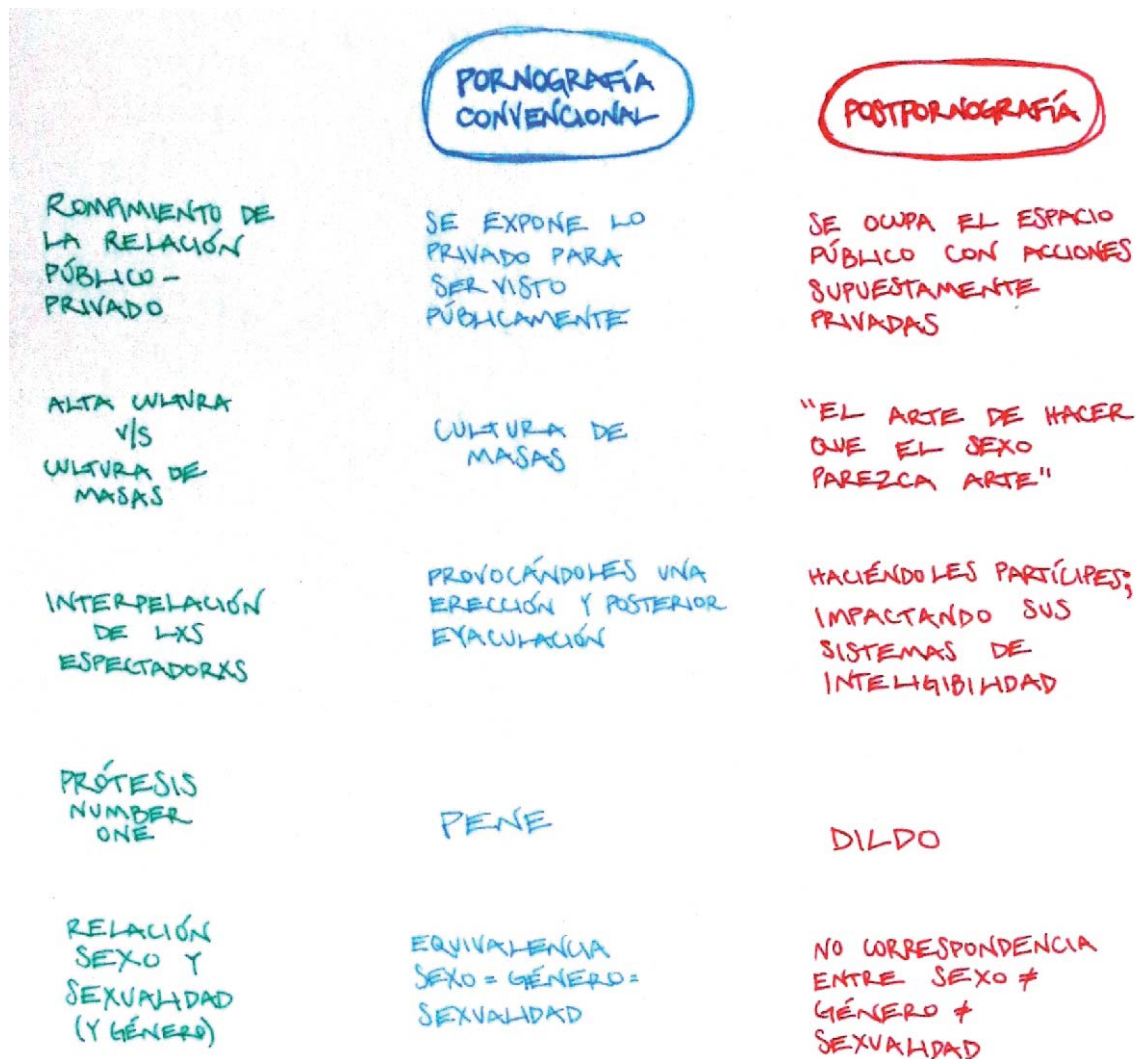 PORNOGRAFÍA
CONVENCIONAL
POSTPORNOGRAFÍA
ROMPIMIENTO DE
LA RELACIÓN
PÚBLICO-
PRIVADO
SE EXPONE LO
PRIVADO PARA
SER VISTO
PÚBLICAMENTE
SE OCUPA EL ESPACIO
PÚBLICO CON ACCIONES
SUPUESTAMENTE
PRIVADAS
ALTA CULTURA
V/S
CULTURA DE
MASAS
CULTURA DE
MASAS
"EL ARTE DE HACER
QUE EL SEXO
PAREZCA ARTE"
INTERPELACIÓN
DE LXS
ESPECTADORXS
PROVOCÁNDOLES UNA
ERECCIÓN Y POSTERIOR
EYACULACIÓN
HACIÉNDOLES PARTÍCIPES;
IMPACTANDO SUS
SISTEMAS DE
INTELIGIBILIDAD
PRÓTESIS
NUMBER
ONE
PENE
DILDO
RELACIÓN
SEXO Y
SEXUALIDAD
(Y GÉNERO)
EQUIVALENCIA
SEXO = GÉNERO =
SEXUALIDAD
NO CORRESPONDENCIA
ENTRE SEXO ≠
GÉNERO ≠
SEXUALIDAD